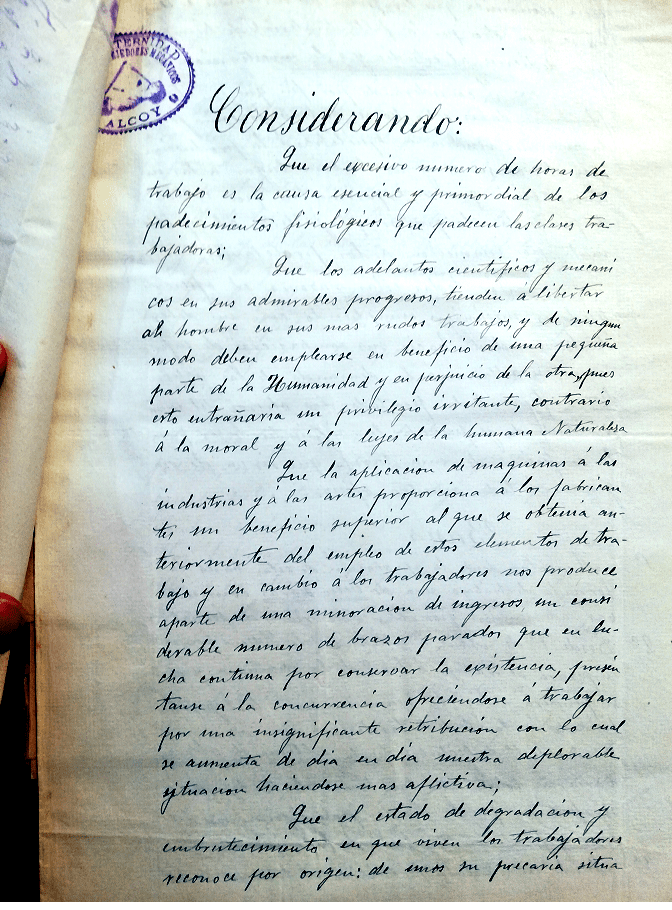 TERNIDAD
MECANICOS
ALCOY
Considerando:
Que el excesivo numero de horas de
trabajo es la causa esencial y primordial de los
padecimientos fisiológicos que padecen las clases tra-
bajadoras;
Que los adelantos cientificos y mecani
cos en sus admirables progresos, tienden á libertar
al hombre en sus mas rudos trabajos, y de ningun
modo deben emplearse en beneficio de una pequeña
parte de la Humanidad y en perjuicio de la otra, pues
esto entrañaria un privilegio irritante, contrario
á la moral y á las leyes de la humana Naturalesa
Que la aplicacion de maquinas á las
industrias y á las artes proporciona á los fabrican
tes un beneficio superior al que se obtenia an-
teriormente del empleo de estos elementos de tra-
bajo y en cambio á los trabajadores nos produce
aparte de una minoracion de ingresos un consi
derable numero de brazos parados que en lu-
cha continua por conservar la existencia, presen
tanse á la concurrencia ofreciendose á trabajar
por una insignificante retribución con lo cual
se aumenta de dia en dia nuestra deplorable
situacion haciendose mas aflictiva;
Que el estado de degradacion y
embrutecimiento en que viven los trabajadores
reconoce por origen: de unos su precaria situa